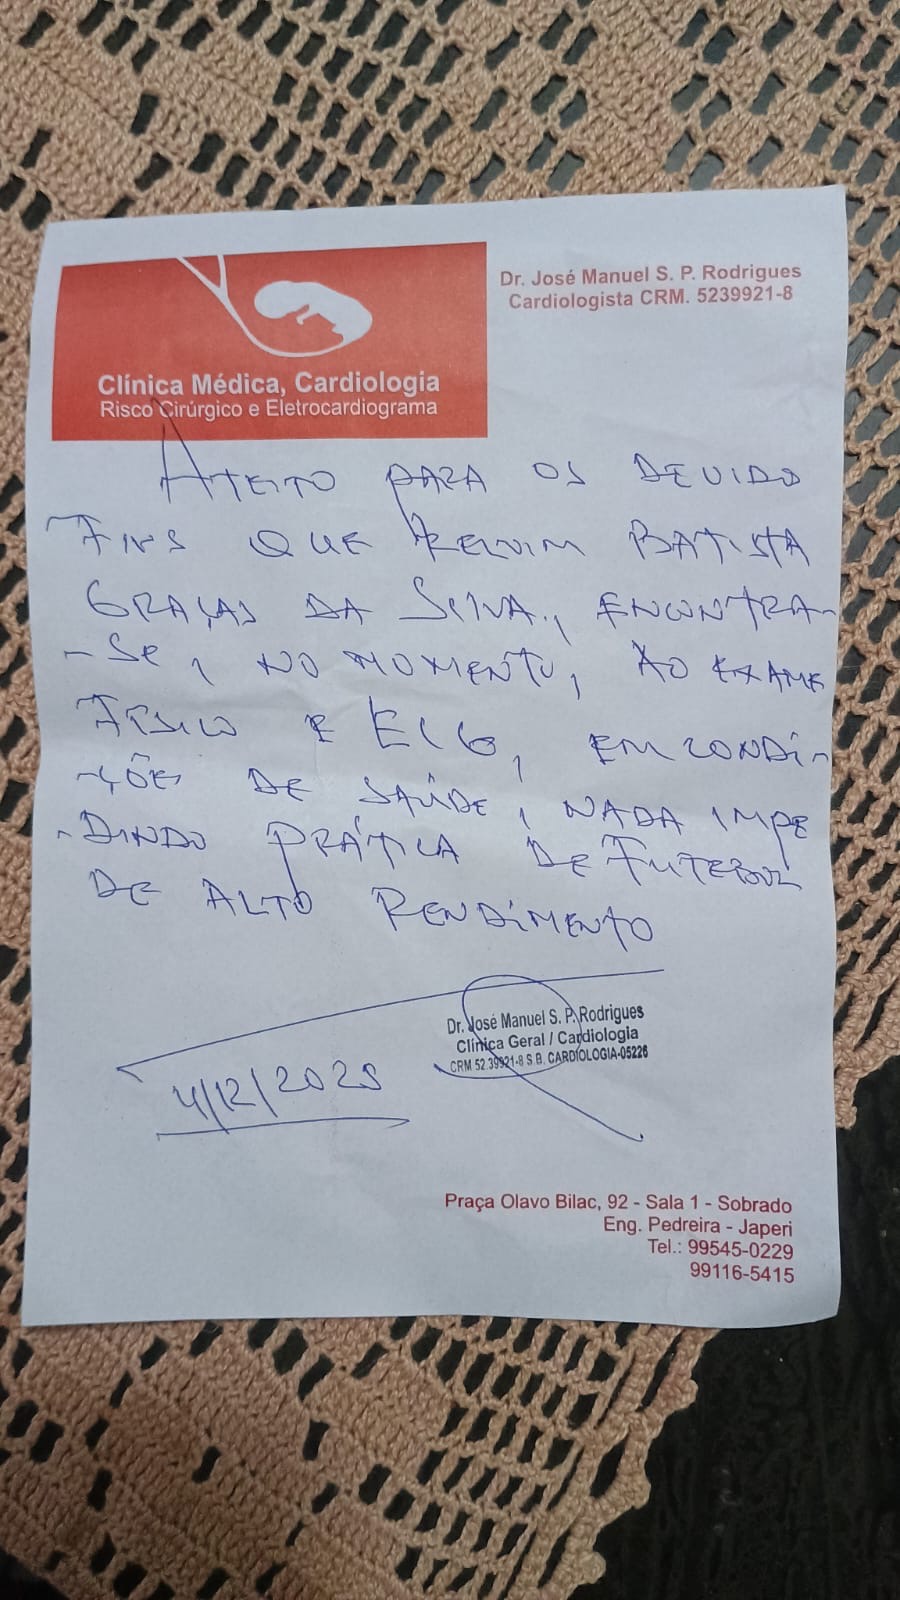 Clínica Médica, Cardiologia
Risco Cirúrgico e Eletrocardiograma
Dr. José Manuel S. P. Rodrigues
Cardiologista CRM. 5239921-8
ATESTO PARA OS DEVIDO
FINS QUE KELVIM BATISTA
GRAÇAS DA SILVA, ENCONTRA-
-SE, NO MOMENTO, AO EXAME
FÍSICO E ECG, EM CONDI-
-ÇÕES DE SAÚDE, NADA IMPE
-DINDO PRÁTICA DE FUTEBOL
DE ALTO RENDIMENTO
Dr. José Manuel S. P. Rodrigues
Clínica Geral / Cardiologia
CRM 52.39921-8 S.B. CARDIOLOGIA-05226
4/12/2025
Praça Olavo Bilac, 92 - Sala 1 - Sobrado
Eng. Pedreira - Japeri
Tel.: 99545-0229
99116-5415